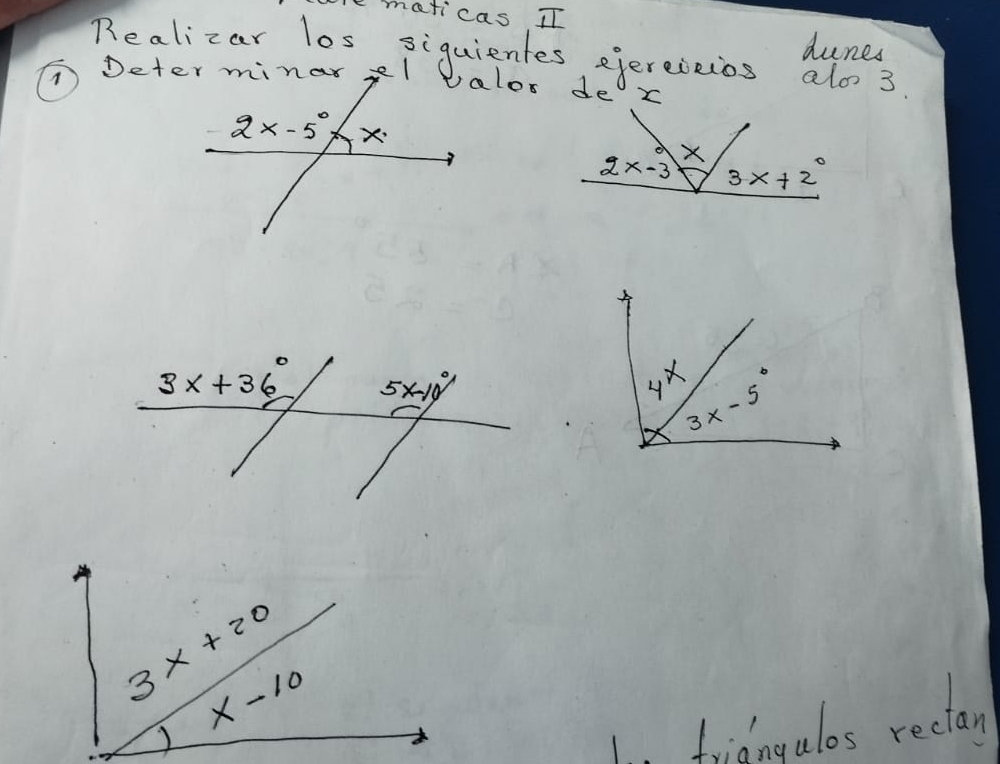 maticas II
Realizar los siguientes ejercicios Lunes
① Determinar el valor de x a los 3.
2x-5° x
2x-3° x 3x+2°
3x+36° 5x-10°
4x 3x-5°
3x+20
x-10
triángulos rectan